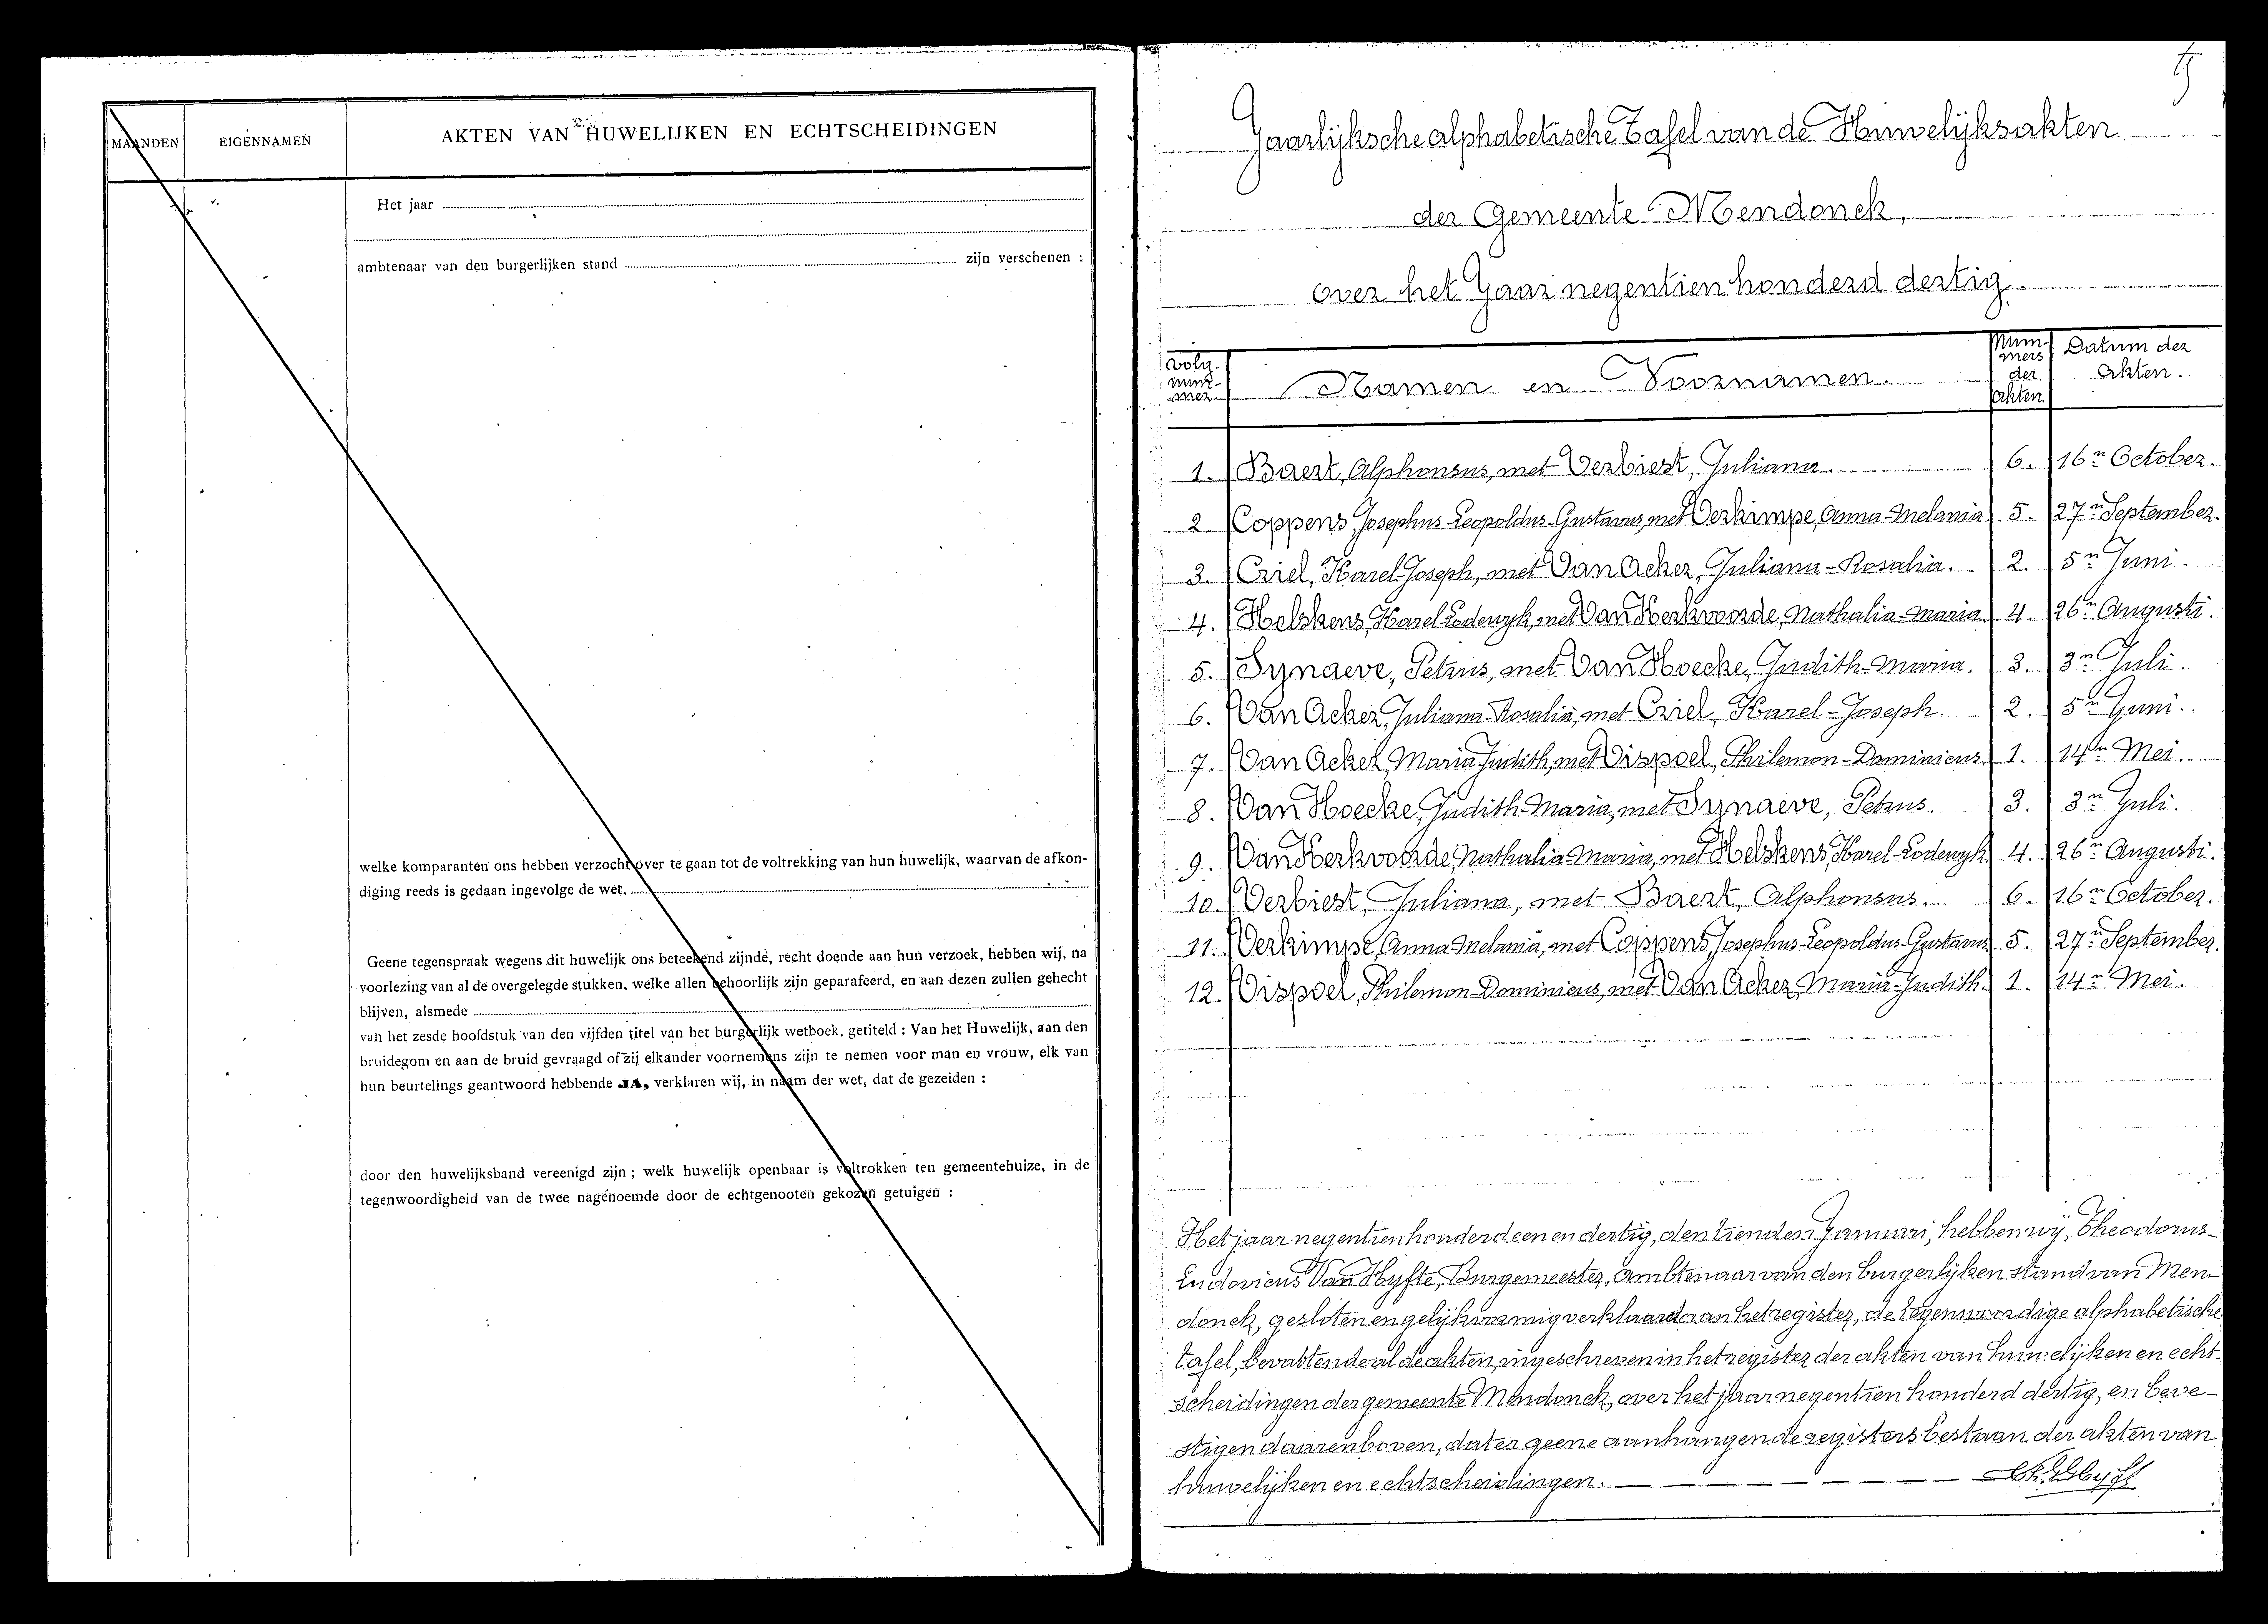 MAANDEN EIGENNAMEN AKTEN VAN HUWELIJKEN EN ECHTSCHEIDINGEN
Het jaar
ambtenaar van den burgerlijken stand zijn verschenen :
welke komparanten ons hebben verzocht over te gaan tot de voltrekking van hun huwelijk, waarvan de afkon-
diging reeds is gedaan ingevolge de wet,
Geene tegenspraak wegens dit huwelijk ons beteekend zijnde, recht doende aan hun verzoek, hebben wij, na
voorlezing van al de overgelegde stukken, welke allen behoorlijk zijn geparafeerd, en aan dezen zullen gehecht
blijven, alsmede
van het zesde hoofdstuk van den vijfden titel van het burgerlijk wetboek, getiteld : Van het Huwelijk, aan den
bruidegom en aan de bruid gevraagd of zij elkander voornemens zijn te nemen voor man en vrouw, elk van
hun beurtelings geantwoord hebbende JA, verklaren wij, in naam der wet, dat de gezeiden :
door den huwelijksband vereenigd zijn ; welk huwelijk openbaar is voltrokken ten gemeentehuize, in de
tegenwoordigheid van de twee nagenoemde door de echtgenooten gekozen getuigen :
Jaarlijksche alphabetische Tafel van de Huwelijksakten
der Gemeente Mendonck,
over het Jaar negentien honderd dertig.
Volg-
num-
mer.
Namen en Voornamen.
Num-
mers
der
Akten.
Datum der
Akten.
1. Baert, Alphonsus, met Verbiest, Juliana. 6. 16n October.
2. Coppens, Josephus-Leopoldus-Gustavus, met Verkimpe, Anna-Melania 5. 27n September.
3. Criel, Karel-Joseph, met Van Acker, Juliana-Rosalia. 2. 5n Juni.
4. Helskens, Karel-Lodewyk, met Van Kerkvoorde, Nathalia-Maria. 4. 26n Augusti.
5. Synaeve, Petrus, met Van Hoecke, Judith-Maria. 3. 3n Juli.
6. Van Acker, Juliana-Rosalia, met Criel, Karel-Joseph. 2. 5n Juni.
7. Van Acker, Maria Judith, met Vispoel, Philemon-Dominicus. 1. 14n Mei.
8. Van Hoecke, Judith-Maria, met Synaeve, Petrus. 3. 3n Juli.
9. Van Kerkvoorde, Nathalia-Maria, met Helskens, Karel-Lodewyk. 4. 26n Augusti.
10. Verbiest, Juliana, met Baert, Alphonsus. 6. 16n October.
11. Verkimpe, Anna-Melania, met Coppens, Josephus-Leopoldus-Gustavus. 5. 27n September.
12. Vispoel, Philemon-Dominicus, met Van Acker, Maria-Judith. 1. 14n Mei.
Het jaar negentien honderd een en dertig, den tienden Januari, hebben wij, Theodorus-
Ludovicus Van Hyfte, Burgemeester, Ambtenaar van den burgerlijken stand van Men-
donck, gesloten en gelijkvormig verklaard aan het register, de tegenwoordige alphabetische
tafel, bevattende al de akten, ingeschreven in het register der akten van huwelijken en echt-
scheidingen der gemeente Mendonck, over het jaar negentien honderd dertig, en beve-
stigen daarenboven, dat er geene aanhangende registers bestaan der akten van
huwelijken en echtscheidingen.